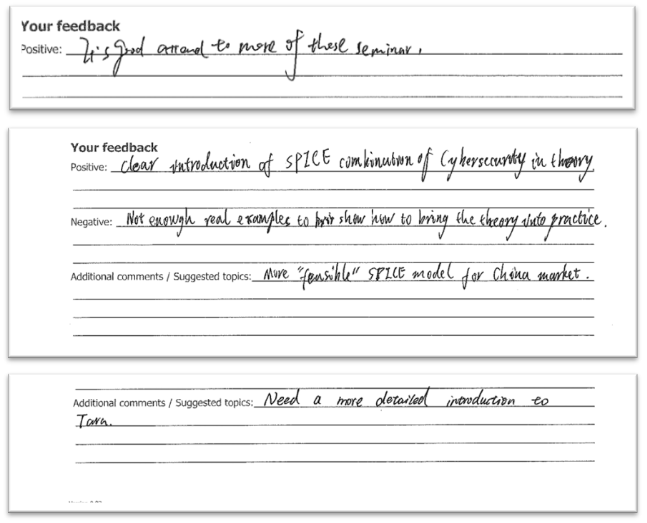 Your feedback
Positive: It's good attand to more of these seminar.
Your feedback
Positive: Clear introduction of SPICE combination of Cybersecurity in theory
Negative: Not enough real examples to show how to bring the theory into practice.
Additional comments / Suggested topics: More "feasible" SPICE model for China market.
Additional comments / Suggested topics: Need a more detailed introduction to
Tara.